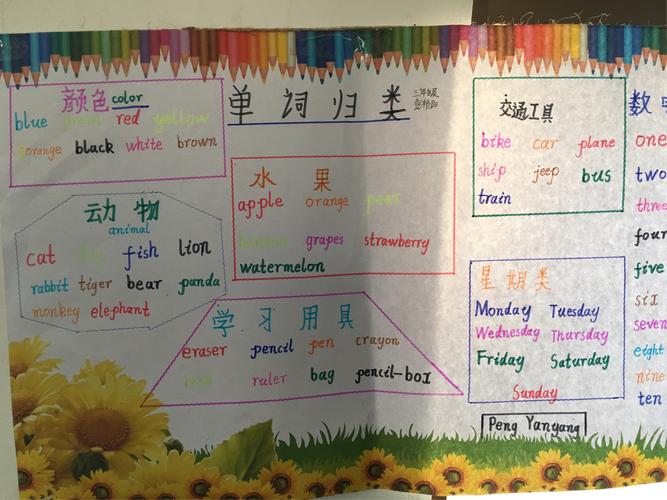 单词归类
三年级
颜色 color
blue green red yellow
orange black white brown
动物
animal
cat dog fish lion
rabbit tiger bear panda
monkey elephant
水果
apple orange pear
banana grapes strawberry
watermelon
学习用具
eraser pencil pen crayon
ruler bag pencil-box
交通工具
bike car plane
ship jeep bus
train
星期类
Monday Tuesday
Wednesday Thursday
Friday Saturday
Sunday
Peng Yanyang
数
one
two
three
four
five
six
seven
eight
nine
ten